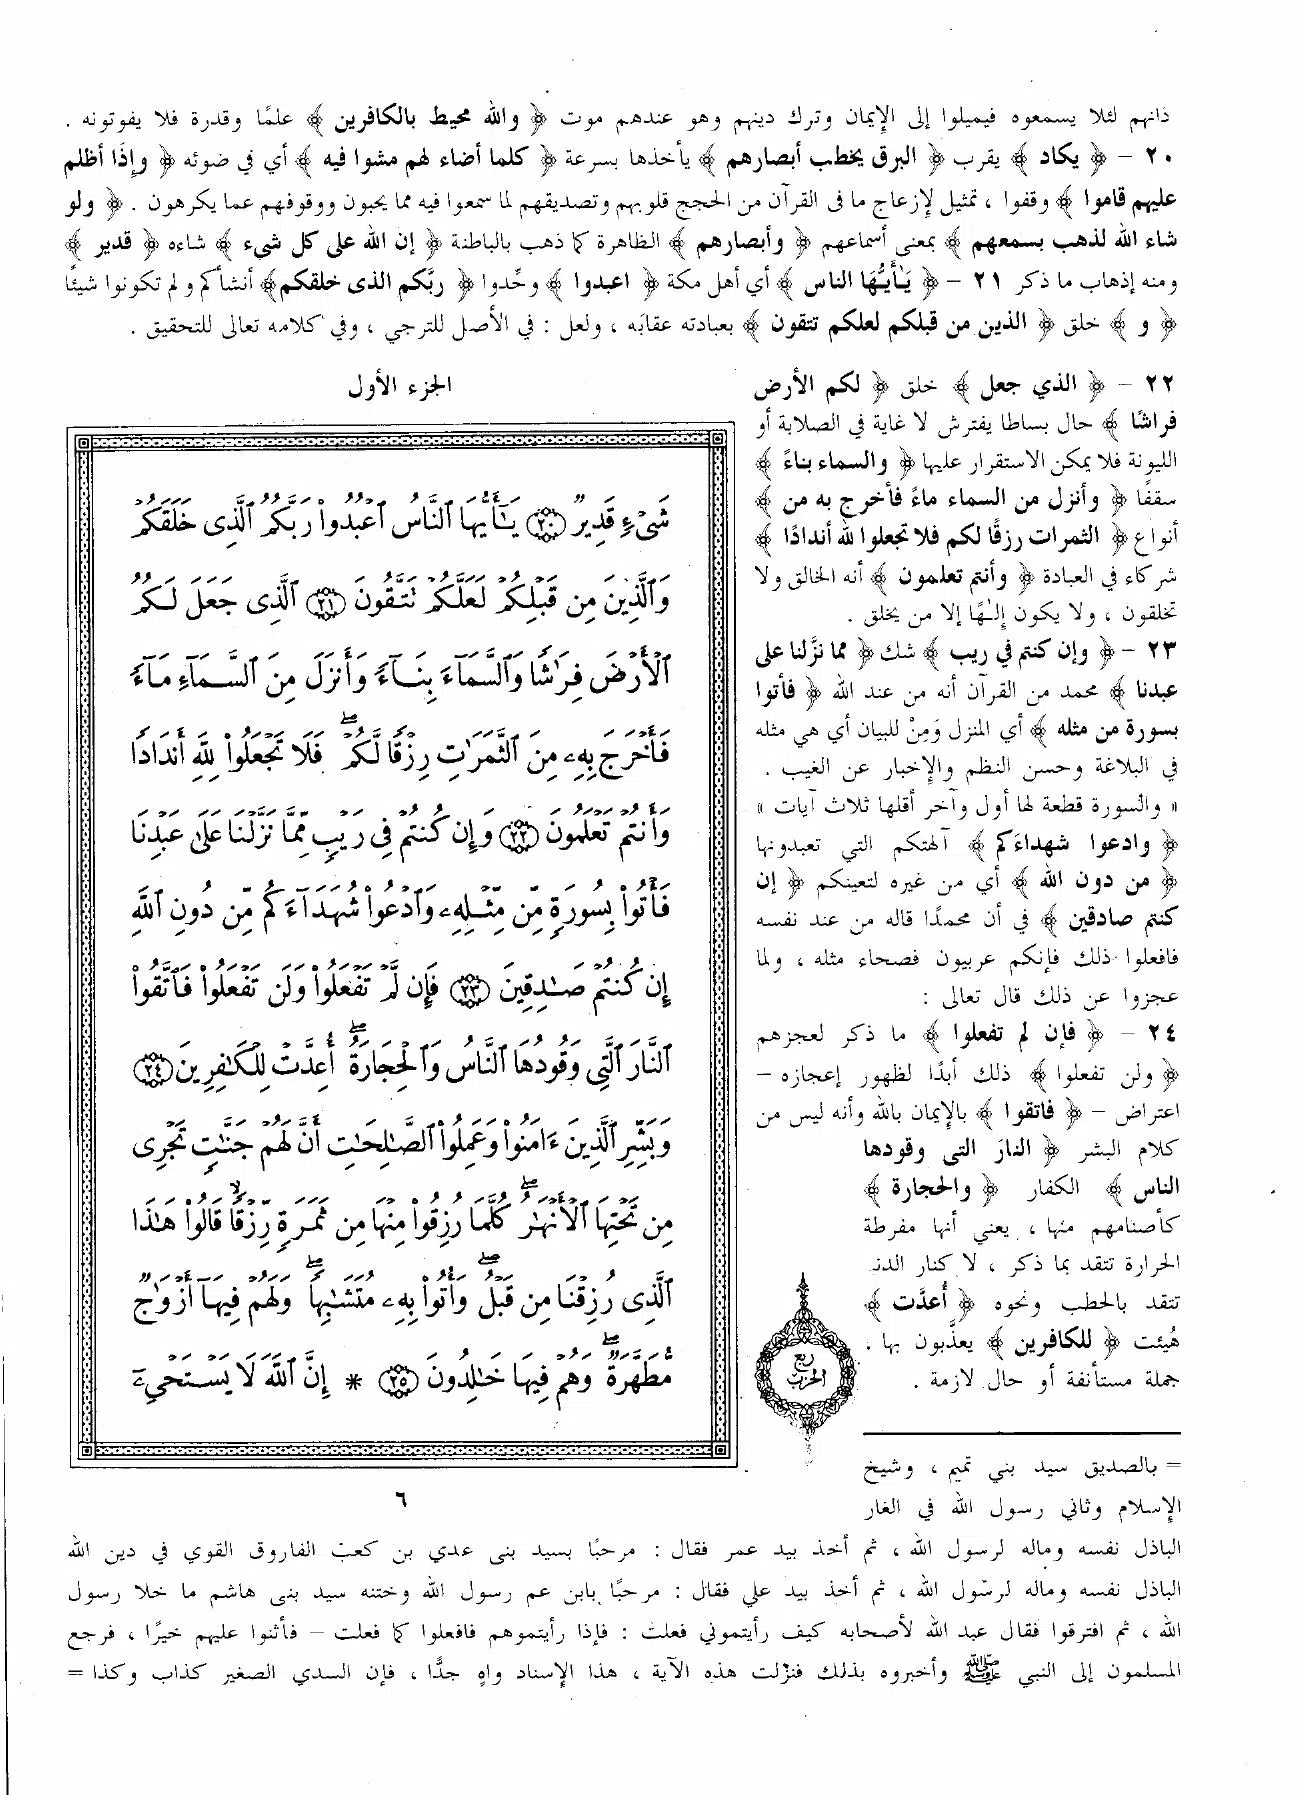 ذانهم لئلا يسمعوه فيميلوا إلى الإيمان وترك دينهم وهو عندهم موت ﴿ والله محيط بالكافرين ﴾ علمًا وقدرة فلا يفوتونه .
٢٠ - ﴿ يكاد ﴾ يقرب ﴿ البرق يخطب أبصارهم ﴾ يأخذها بسرعة ﴿ كلما أضاء لهم مشوا فيه ﴾ أي في ضوئه ﴿ وإذَا أظلم
عليهم قاموا ﴾ وقفوا ، تمثيل لإزعاج ما فى القرآن من الحجج قلوبهم وتصديقهم لما سمعوا فيه مما يحبون ووقوفهم عما يكرهون . ﴿ ولو
شاء الله لذهب بسمعهم ﴾ بمعنى أسماعهم ﴿ وأبصارهم ﴾ الظاهرة كما ذهب بالباطنة ﴿ إن الله على كل شيء ﴾ شاءه ﴿ قدير ﴾
ومنه إذهاب ما ذكر ٢١ - ﴿ يَـٰٓأَيُّهَا الناس ﴾ أي أهل مكة ﴿ اعبدوا ﴾ وحِّدوا ﴿ ربَّكم الذى خلقكم ﴾ أنشأكم ولم تكونوا شيئًا
﴿ و ﴾ خلق ﴿ الذين من قبلكم لعلكم تتقون ﴾ بعبادته عقابَه ، ولعل : في الأصل للترجي ، وفي كلامه تعالى للتحقيق .
الجزء الأول
٢٢ - ﴿ الذي جعل ﴾ خلق ﴿ لكم الأرض
فراشًا ﴾ حال بساطا يفترش لا غاية في الصلابة أو
الليونة فلا يمكن الاستقرار عليها ﴿ والسماء بناءً ﴾
سقفًا ﴿ وأنزل من السماء ماءً فأخرج به من ﴾
أنواع ﴿ الثمرات رزقًا لكم فلا تجعلوا لله أندادًا ﴾
شركاء في العبادة ﴿ وأنتم تعلمون ﴾ أنه الخالق ولا
تخلقون ، ولا يكون إلـٰهًا إلا من يخلق .
٢٣ - ﴿ وإن كنتم في ريب ﴾ شك ﴿ مما نزَّلنا على
عبدنا ﴾ محمد من القرآن أنه من عند الله ﴿ فأتوا
بسورة من مثله ﴾ أي المنزل وَمِنْ للبيان أي هي مثله
في البلاغة وحسن النظم والإخبار عن الغيب .
« والسورة قطعة لها أول وآخر أقلها ثلاث آيات »
﴿ وادعوا شهداءَكم ﴾ آلهتكم التي تعبدونها
﴿ من دون الله ﴾ أي من غيره لتعينكم ﴿ إن
كنتم صادقين ﴾ في أن محمدًا قاله من عند نفسه
فافعلوا ذلك فإنكم عربيون فصحاء مثله ، ولما
عجزوا عن ذلك قال تعالى :
٢٤ - ﴿ فإن لم تفعلوا ﴾ ما ذكر لعجزهم
﴿ ولن تفعلوا ﴾ ذلك أبدًا لظهور إعجازه -
اعتراض - ﴿ فاتقوا ﴾ بالإيمان بالله وأنه ليس من
كلام البشر ﴿ النارَ التى وقودها
الناس ﴾ الكفار ﴿ والحجارة ﴾
كأصنامهم منها ، يعني أنها مفرطة
الحرارة تتقد بما ذكر ، لا كنار الدنـ
تتقد بالحطب ونحوه ﴿ أُعدَّت ﴾
هُيئت ﴿ للكافرين ﴾ يعذَّبون بها .
جملة مستأنفة أو حال لازمة .
شَىۡءٖ قَدِيرٞ ٢٠ يَـٰٓأَيُّهَا ٱلنَّاسُ ٱعۡبُدُواْ رَبَّكُمُ ٱلَّذِى خَلَقَكُمۡ
وَٱلَّذِينَ مِن قَبۡلِكُمۡ لَعَلَّكُمۡ تَتَّقُونَ ٢١ ٱلَّذِى جَعَلَ لَكُمُ
ٱلۡأَرۡضَ فِرَٰشٗا وَٱلسَّمَآءَ بِنَآءٗ وَأَنزَلَ مِنَ ٱلسَّمَآءِ مَآءٗ
فَأَخۡرَجَ بِهِۦ مِنَ ٱلثَّمَرَٰتِ رِزۡقٗا لَّكُمۡۖ فَلَا تَجۡعَلُواْ لِلَّهِ أَندَادٗا
وَأَنتُمۡ تَعۡلَمُونَ ٢٢ وَإِن كُنتُمۡ فِى رَيۡبٖ مِّمَّا نَزَّلۡنَا عَلَىٰ عَبۡدِنَا
فَأۡتُواْ بِسُورَةٖ مِّن مِّثۡلِهِۦ وَٱدۡعُواْ شُهَدَآءَكُم مِّن دُونِ ٱللَّهِ
إِن كُنتُمۡ صَـٰدِقِينَ ٢٣ فَإِن لَّمۡ تَفۡعَلُواْ وَلَن تَفۡعَلُواْ فَٱتَّقُواْ
ٱلنَّارَ ٱلَّتِى وَقُودُهَا ٱلنَّاسُ وَٱلۡحِجَارَةُۖ أُعِدَّتۡ لِلۡكَـٰفِرِينَ ٢٤
وَبَشِّرِ ٱلَّذِينَ ءَامَنُواْ وَعَمِلُواْ ٱلصَّـٰلِحَـٰتِ أَنَّ لَهُمۡ جَنَّـٰتٖ تَجۡرِى
مِن تَحۡتِهَا ٱلۡأَنۡهَـٰرُۖ كُلَّمَا رُزِقُواْ مِنۡهَا مِن ثَمَرَةٖ رِّزۡقٗا قَالُواْ هَـٰذَا
ٱلَّذِى رُزِقۡنَا مِن قَبۡلُۖ وَأُتُواْ بِهِۦ مُتَشَـٰبِهٗاۖ وَلَهُمۡ فِيهَآ أَزۡوَٰجٞ
مُّطَهَّرَةٞۖ وَهُمۡ فِيهَا خَـٰلِدُونَ ٢٥ * إِنَّ ٱللَّهَ لَا يَسۡتَحۡىِۦٓ
ربع
الحزب
٦
= بالصديق سيد بني تميم ، وشيخ
الإسلام وثاني رسول الله في الغار
الباذل نفسه وماله لرسول الله ، ثم أخذ بيد عمر فقال : مرحبًا بسيد بنى عدي بن كعب الفاروق القوي في دين الله
الباذل نفسه وماله لرسول الله ، ثم أخذ بيد علي فقال : مرحبًا بابن عم رسول الله وختنه سيد بنى هاشم ما خلا رسول
الله ، ثم افترقوا فقال عبد الله لأصحابه كيف رأيتموني فعلت : فإذا رأيتموهم فافعلوا كما فعلت - فأثنوا عليهم خيرًا ، فرجع
المسلمون إلى النبي ﷺ وأخبروه بذلك فنزلت هذه الآية ، هذا الإسناد واهٍ جدًّا ، فإن السدي الصغير كذاب وكذا =